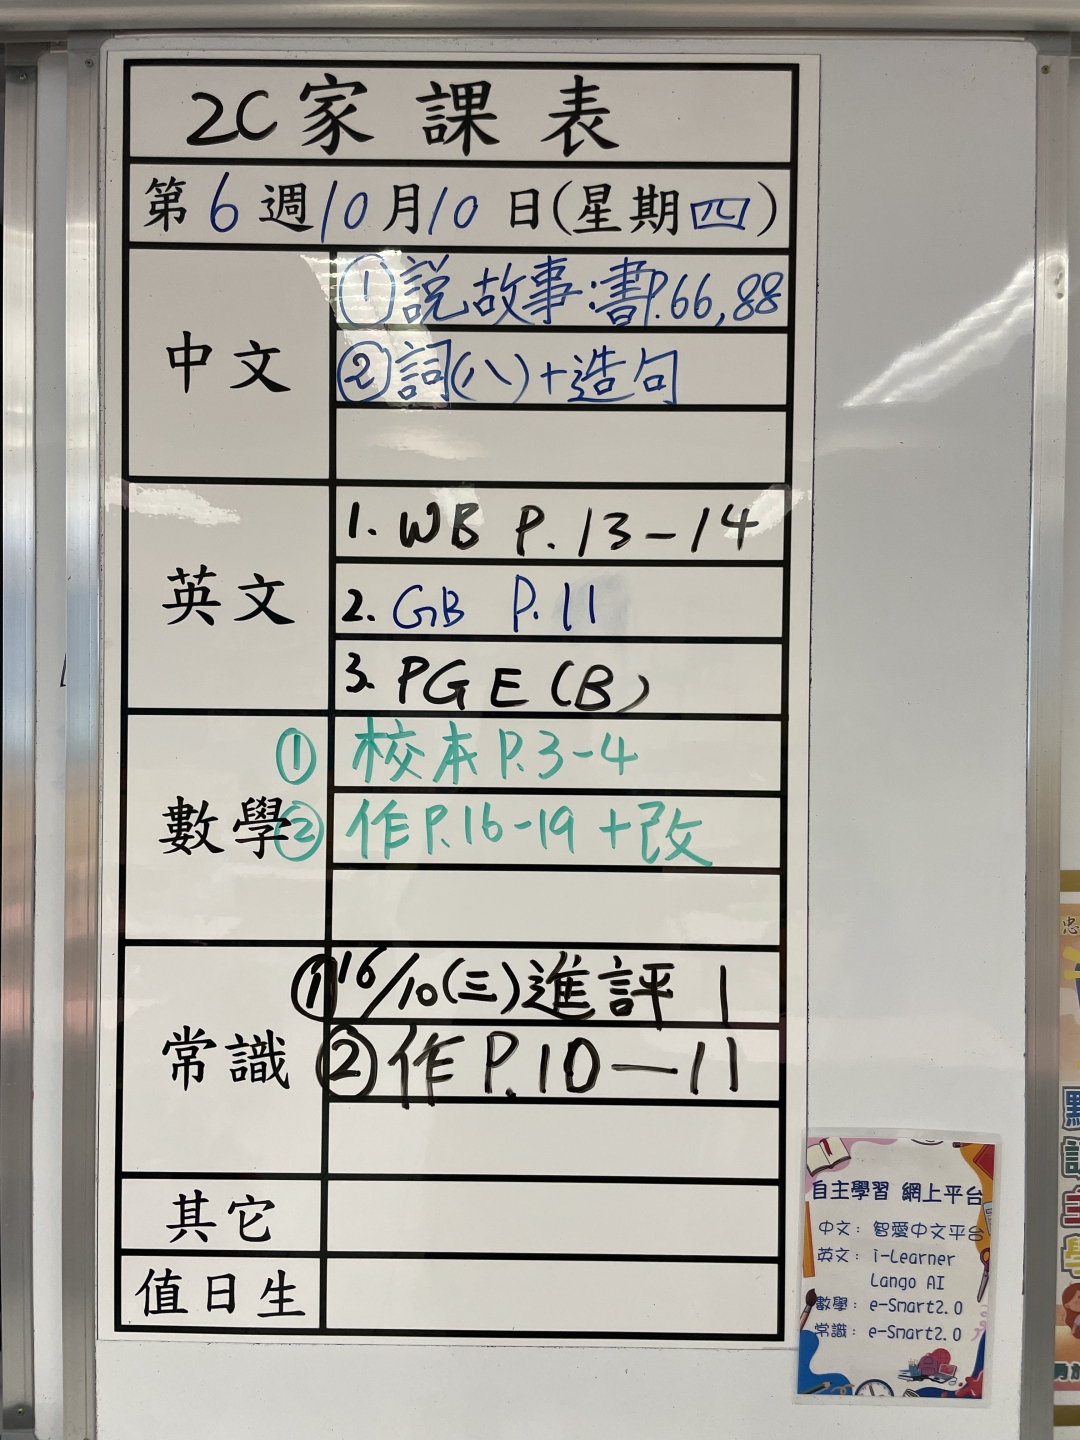 2C家課表
第6週10月10日(星期四)
中文
①說故事:書P.66,88
②詞(八)+造句
英文
1. WB P. 13-14
2. GB P.11
3. PGE (B)
數學
① 校本P.3-4
② 作P.16-19 +改
常識
①16/10(三)進評 1
②作P.10-11
其它
值日生
自主學習 網上平台
中文: 智愛中文平台
英文: i-Learner
Lango AI
數學: e-Smart2.0
常識: e-Smart2.0
忠